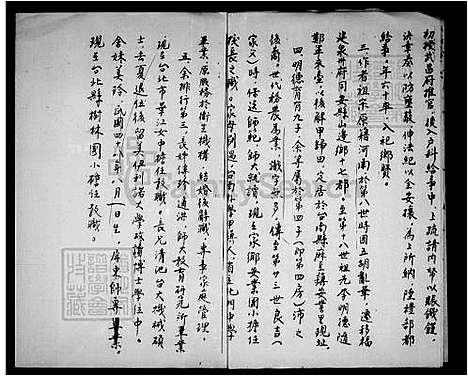 初授武昌府推官，後入戶科給事中，上疏請內帑以賑饑饉
決章奏以防壅蔽伸法紀以全安攘，為上所納，陞禮部都
給事，年六十卒，入祀鄉賢。
三、作者祖宗原籍河南於第八世時因五胡亂華，遷移福
建泉州府同安縣山邊鄉十七都，至第十八世祖元李明德隨
鄭軍來臺，以後解甲歸田，定居於台南縣麻豆鎮安業里現址。
四、明德育有九子，余等屬於第四子（即第四房）沛之
後裔，世代務農為業，識字者少，傳至第廿三世良吉（
家父）時，任送師範師大就讀，現在家鄉安業國小擔任
校長之職。
五、余排行第三，
畢業，原服務於衛生機構，結婚後解職，專事家庭管理。
師大教育研究所畢業
現在台北市華江女中擔任教職。長兄清池台大機械碩
士，去夏退伍後留美伊利諾大學攻讀博士學位中。
舍妹美玲，民國四八年八月一日生，屏東師專畢業。
現在台北縣樹林國小擔任教職。
FamilySearch